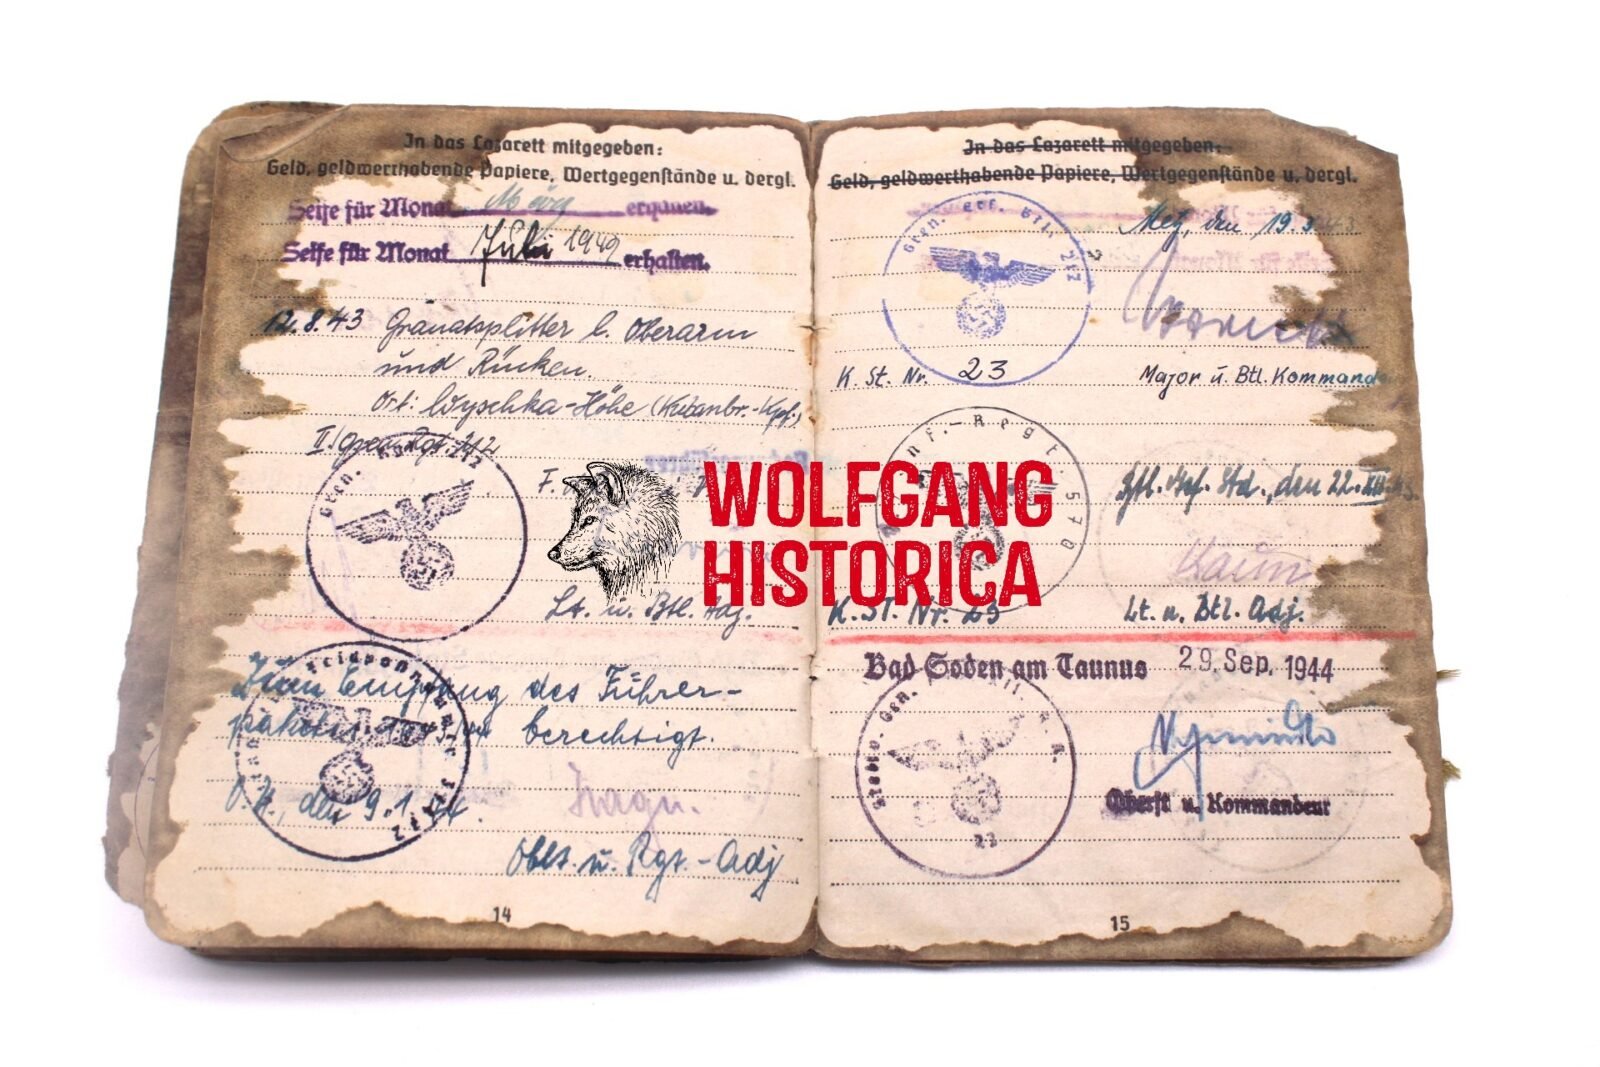 In das Lazarett mitgegeben:
Geld, geldwerthabende Papiere, Wertgegenstände u. dergl.
Seife für Monat März erhalten.
Seife für Monat Juli 1949 erhalten.
12.8.43 Granatsplitter l. Oberarm
und Rücken.
Ort: Wyschka-Höhe (Kubanbr.-Kpf.)
II./Gren.Rgt. 212
F.
Lt. u. Btl. Adj.
Zum Empfang des Führer-
pakets 1943/44 berechtigt.
O.U., den 9.1.44.
Hagn.
Oblt. u. Rgt.-Adj
14
WOLFGANG
HISTORICA
In das Lazarett mitgegeben:
Geld, geldwerthabende Papiere, Wertgegenstände u. dergl.
Metz, den 19.
Gren. Ers. Btl. 212
K. St. Nr. 23
Major u. Btl. Kommand
Inf.-Regt. 570
den 22.
K. St. Nr. 23
Lt. u. Btl. Adj.
Bad Soden am Taunus 29. Sep. 1944
23
Oberst u. Kommandeur
15